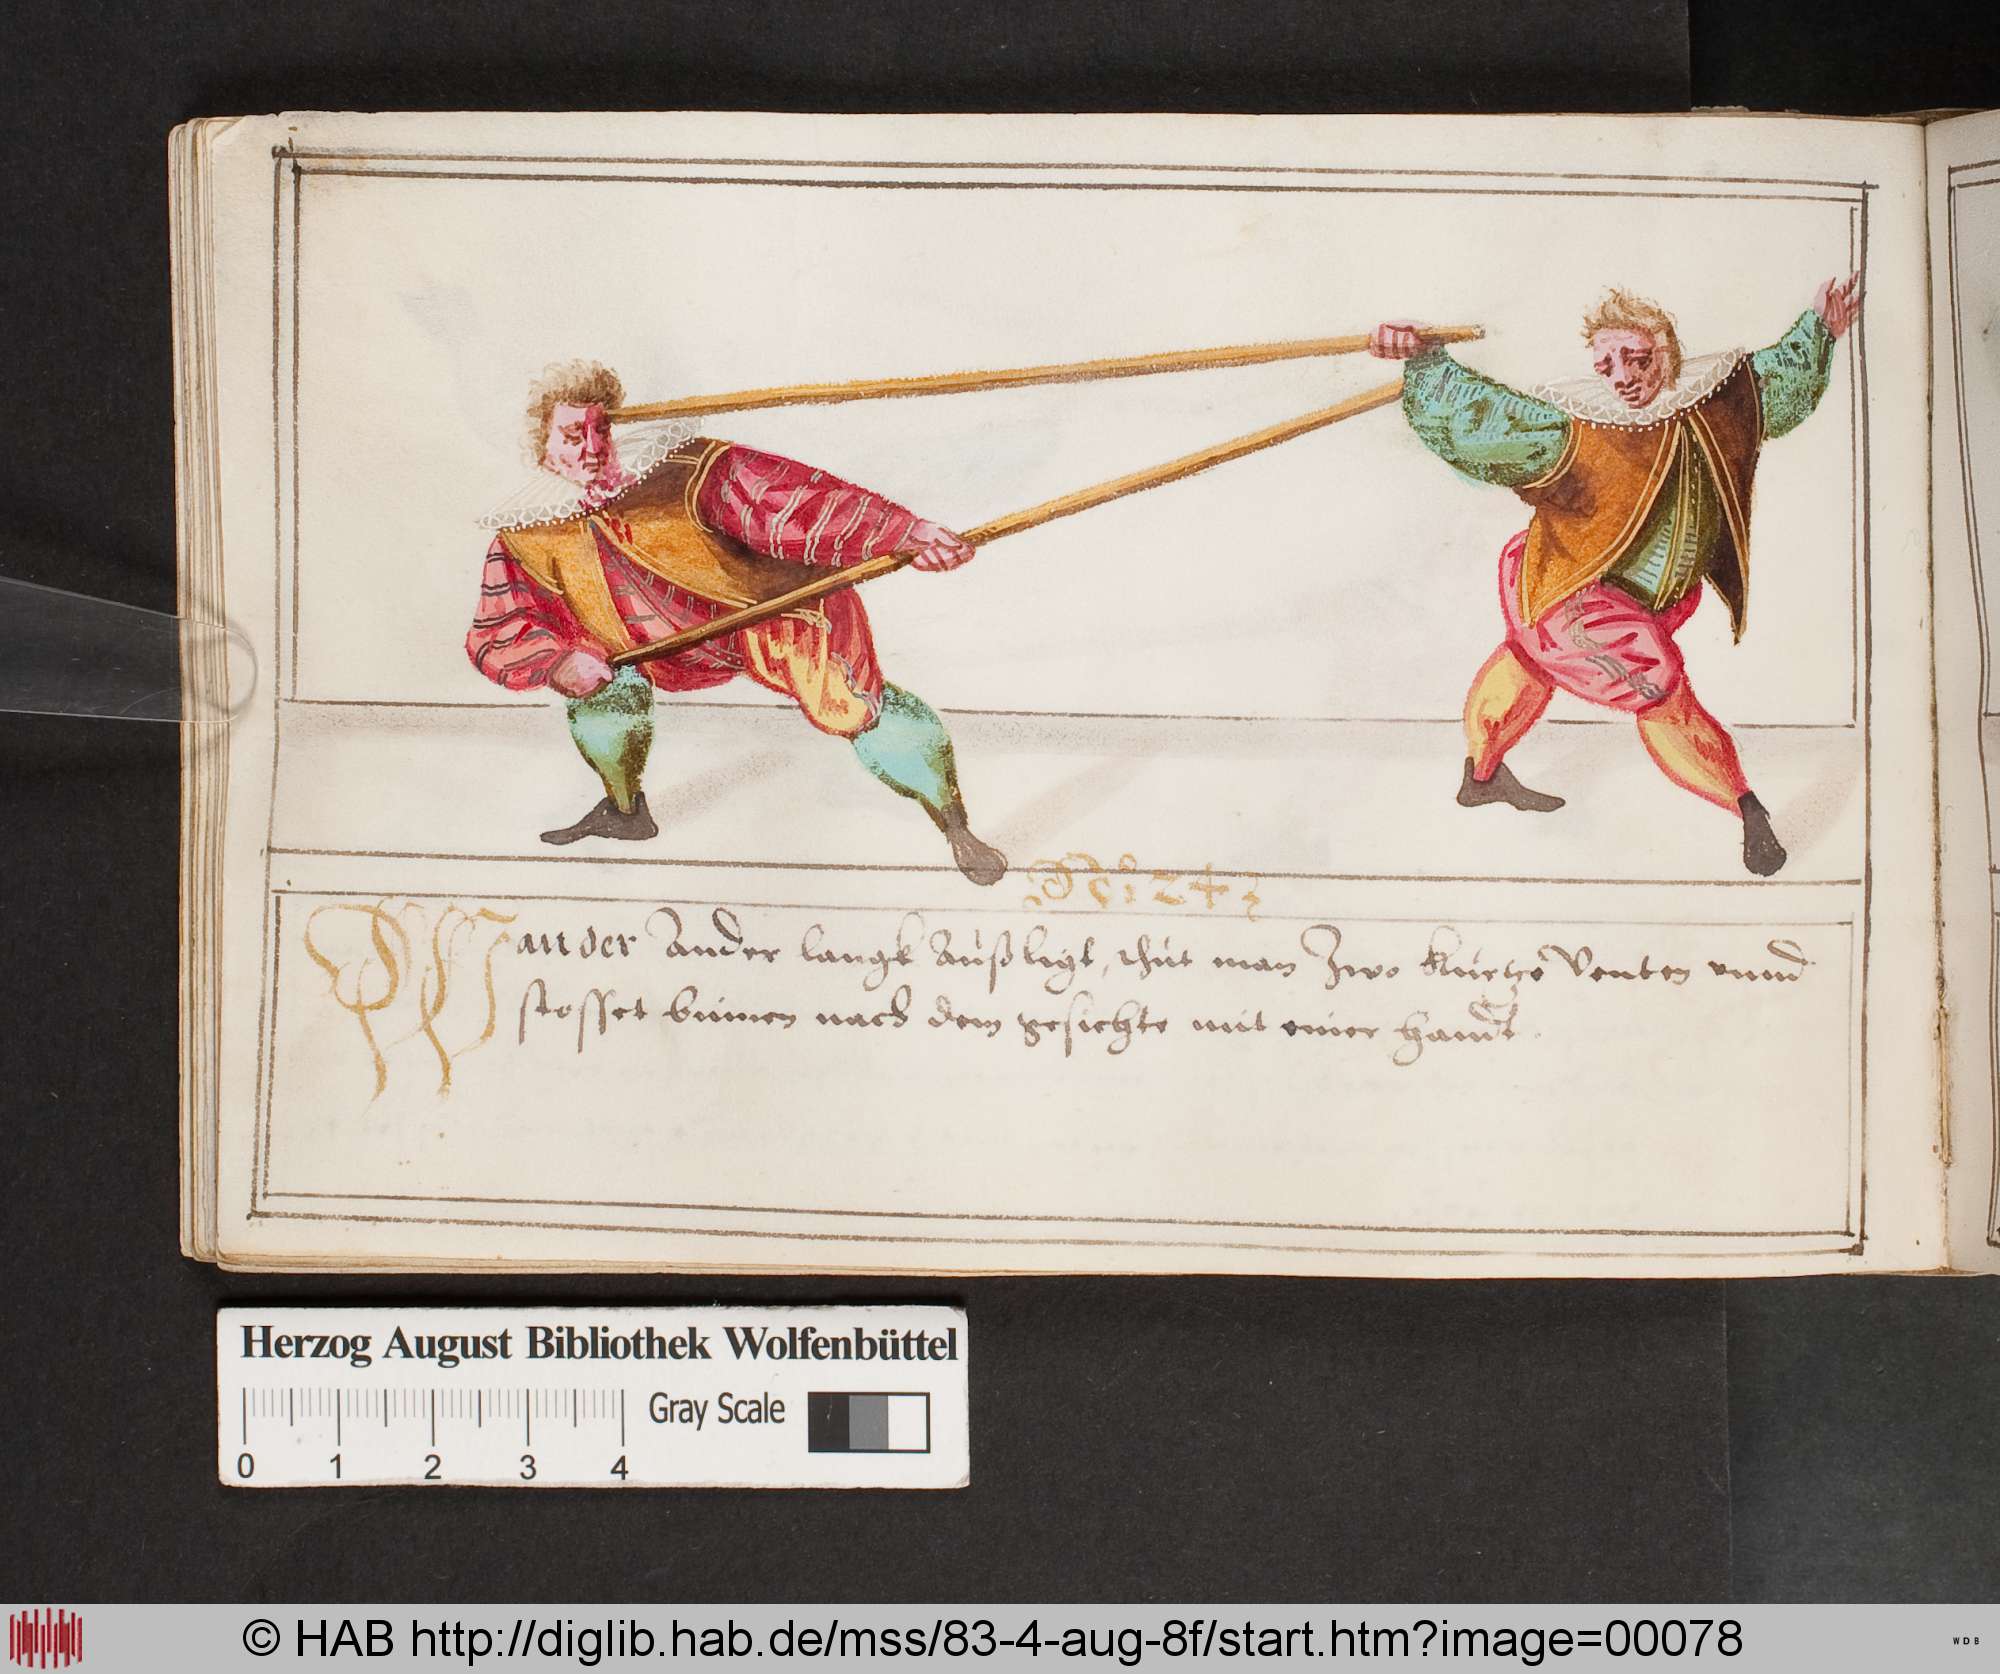 N̊: 24:
Wan der Ander langk Außligt, thut man Zwo Kurtze Venten vnnd
stosset binnen nach dem gesichte mit einer handt.
Herzog August Bibliothek Wolfenbüttel
0 1 2 3 4 Gray Scale
© HAB http://diglib.hab.de/mss/83-4-aug-8f/start.htm?image=00078
WDB